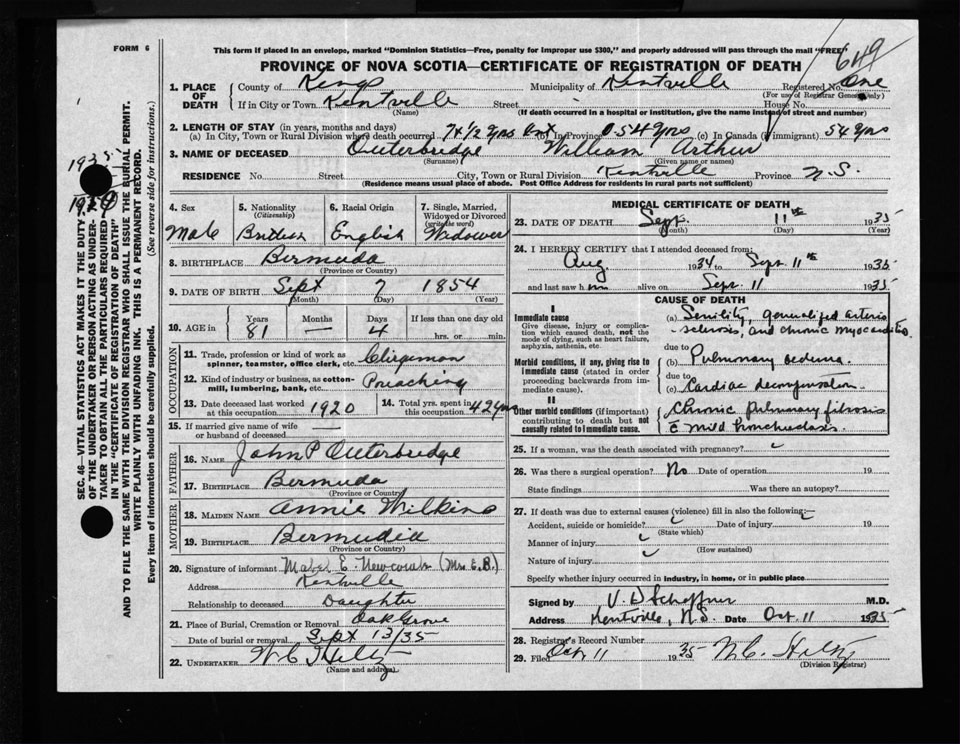 FORM 6
This form if placed in an envelope, marked "Dominion Statistics—Free, penalty for improper use $300," and properly addressed will pass through the mail "FREE"
649
PROVINCE OF NOVA SCOTIA—CERTIFICATE OF REGISTRATION OF DEATH
1. PLACE OF DEATH
County of Kings Municipality of Kentville Registered No. One
(For use of Registrar General only)
If in City or Town Kentville Street House No.
(Name) (If death occurred in a hospital or institution, give the name instead of street and number)
2. LENGTH OF STAY (in years, months and days)
(a) In City, Town or Rural Division where death occurred 7 4 1/2 yrs (b) in Province 54 yrs (c) In Canada (if immigrant) 54 yrs
3. NAME OF DECEASED Outerbridge William Arthur
(Surname) (Given name or names)
RESIDENCE No. Street City, Town or Rural Division Kentville Province N.S.
(Residence means usual place of abode. Post Office Address for residents in rural parts not sufficient)
4. Sex Male
5. Nationality (Citizenship) British
6. Racial Origin English
7. Single, Married, Widowed or Divorced (write the word) Widower
8. BIRTHPLACE Bermuda
(Province or Country)
9. DATE OF BIRTH Sept 7 1854
(Month) (Day) (Year)
10. AGE in Years 81 Months — Days 4 If less than one day old hrs. or min.
OCCUPATION
11. Trade, profession or kind of work as spinner, teamster, office clerk, etc. Clergeman
12. Kind of industry or business, as cotton-mill, lumbering, bank, etc. Preaching
13. Date deceased last worked at this occupation 1920
14. Total yrs. spent in this occupation 42 yrs
15. If married give name of wife or husband of deceased —
FATHER
16. NAME John P Outerbridge
17. BIRTHPLACE Bermuda
(Province or Country)
MOTHER
18. MAIDEN NAME Annie Wilkins
19. BIRTHPLACE Bermudia
(Province or Country)
20. Signature of informant Mabel E. Newcomb (Mrs E.B.)
Address Kentville
Relationship to deceased Daughter
21. Place of Burial, Cremation or Removal Oak Grove
Date of burial or removal Sept 13/35
22. UNDERTAKER W C Hiltz
(Name and address)
MEDICAL CERTIFICATE OF DEATH
23. DATE OF DEATH Sept. 11th 1935
(Month) (Day) (Year)
24. I HEREBY CERTIFY that I attended deceased from:
Aug 1934 to Sept. 11th 1935
and last saw him alive on Sept. 11 1935
CAUSE OF DEATH
I
Immediate cause
Give disease, injury or complication which caused death, not the mode of dying, such as heart failure, asphyxia, asthenia, etc.
(a) Senility, generalized arterio
-sclerosis, and chronic myocarditis
due to
Morbid conditions, if any, giving rise to immediate cause (stated in order proceeding backwards from immediate cause).
(b) Pulmonary oedema.
due to
(c) Cardiac decompensation.
II
Other morbid conditions (if important) contributing to death but not causally related to immediate cause.
Chronic pulmonary fibrosis
c̄ mild bronchiectasis.
25. If a woman, was the death associated with pregnancy?
26. Was there a surgical operation? No Date of operation 19
State findings Was there an autopsy?
27. If death was due to external causes (violence) fill in also the following:—
Accident, suicide or homicide? Date of injury 19
(State which)
Manner of injury
(How sustained)
Nature of injury
Specify whether injury occurred in industry, in home, or in public place
Signed by V. D Schaffner M.D.
Address Kentville, N.S. Date Oct. 11 1935
28. Registrar's Record Number
29. Filed Oct 11 1935 W.C. Hiltz
(Division Registrar)
SEC. 46—VITAL STATISTICS ACT MAKES IT THE DUTY
OF THE UNDERTAKER OR PERSON ACTING AS UNDER-
TAKER TO OBTAIN ALL THE PARTICULARS REQUIRED
IN THE "CERTIFICATE OF REGISTRATION OF DEATH"
AND TO FILE THE SAME WITH THE DIVISION REGISTRAR WHO SHALL ISSUE THE BURIAL PERMIT.
WRITE PLAINLY WITH UNFADING INK. THIS IS A PERMANENT RECORD.
Every item of information should be carefully supplied. (See reverse side for instructions.)
1935